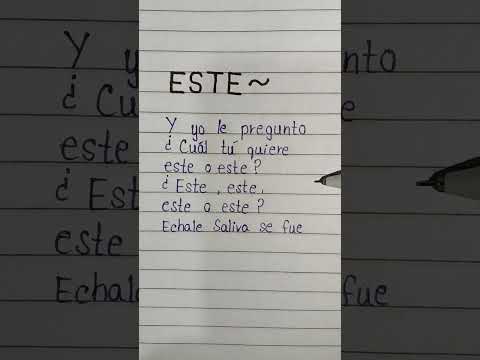 ESTE~
Y yo le pregunto
¿Cuál tú quiere
este o este?
¿Este, este,
este o este?
Echale Saliva se fue